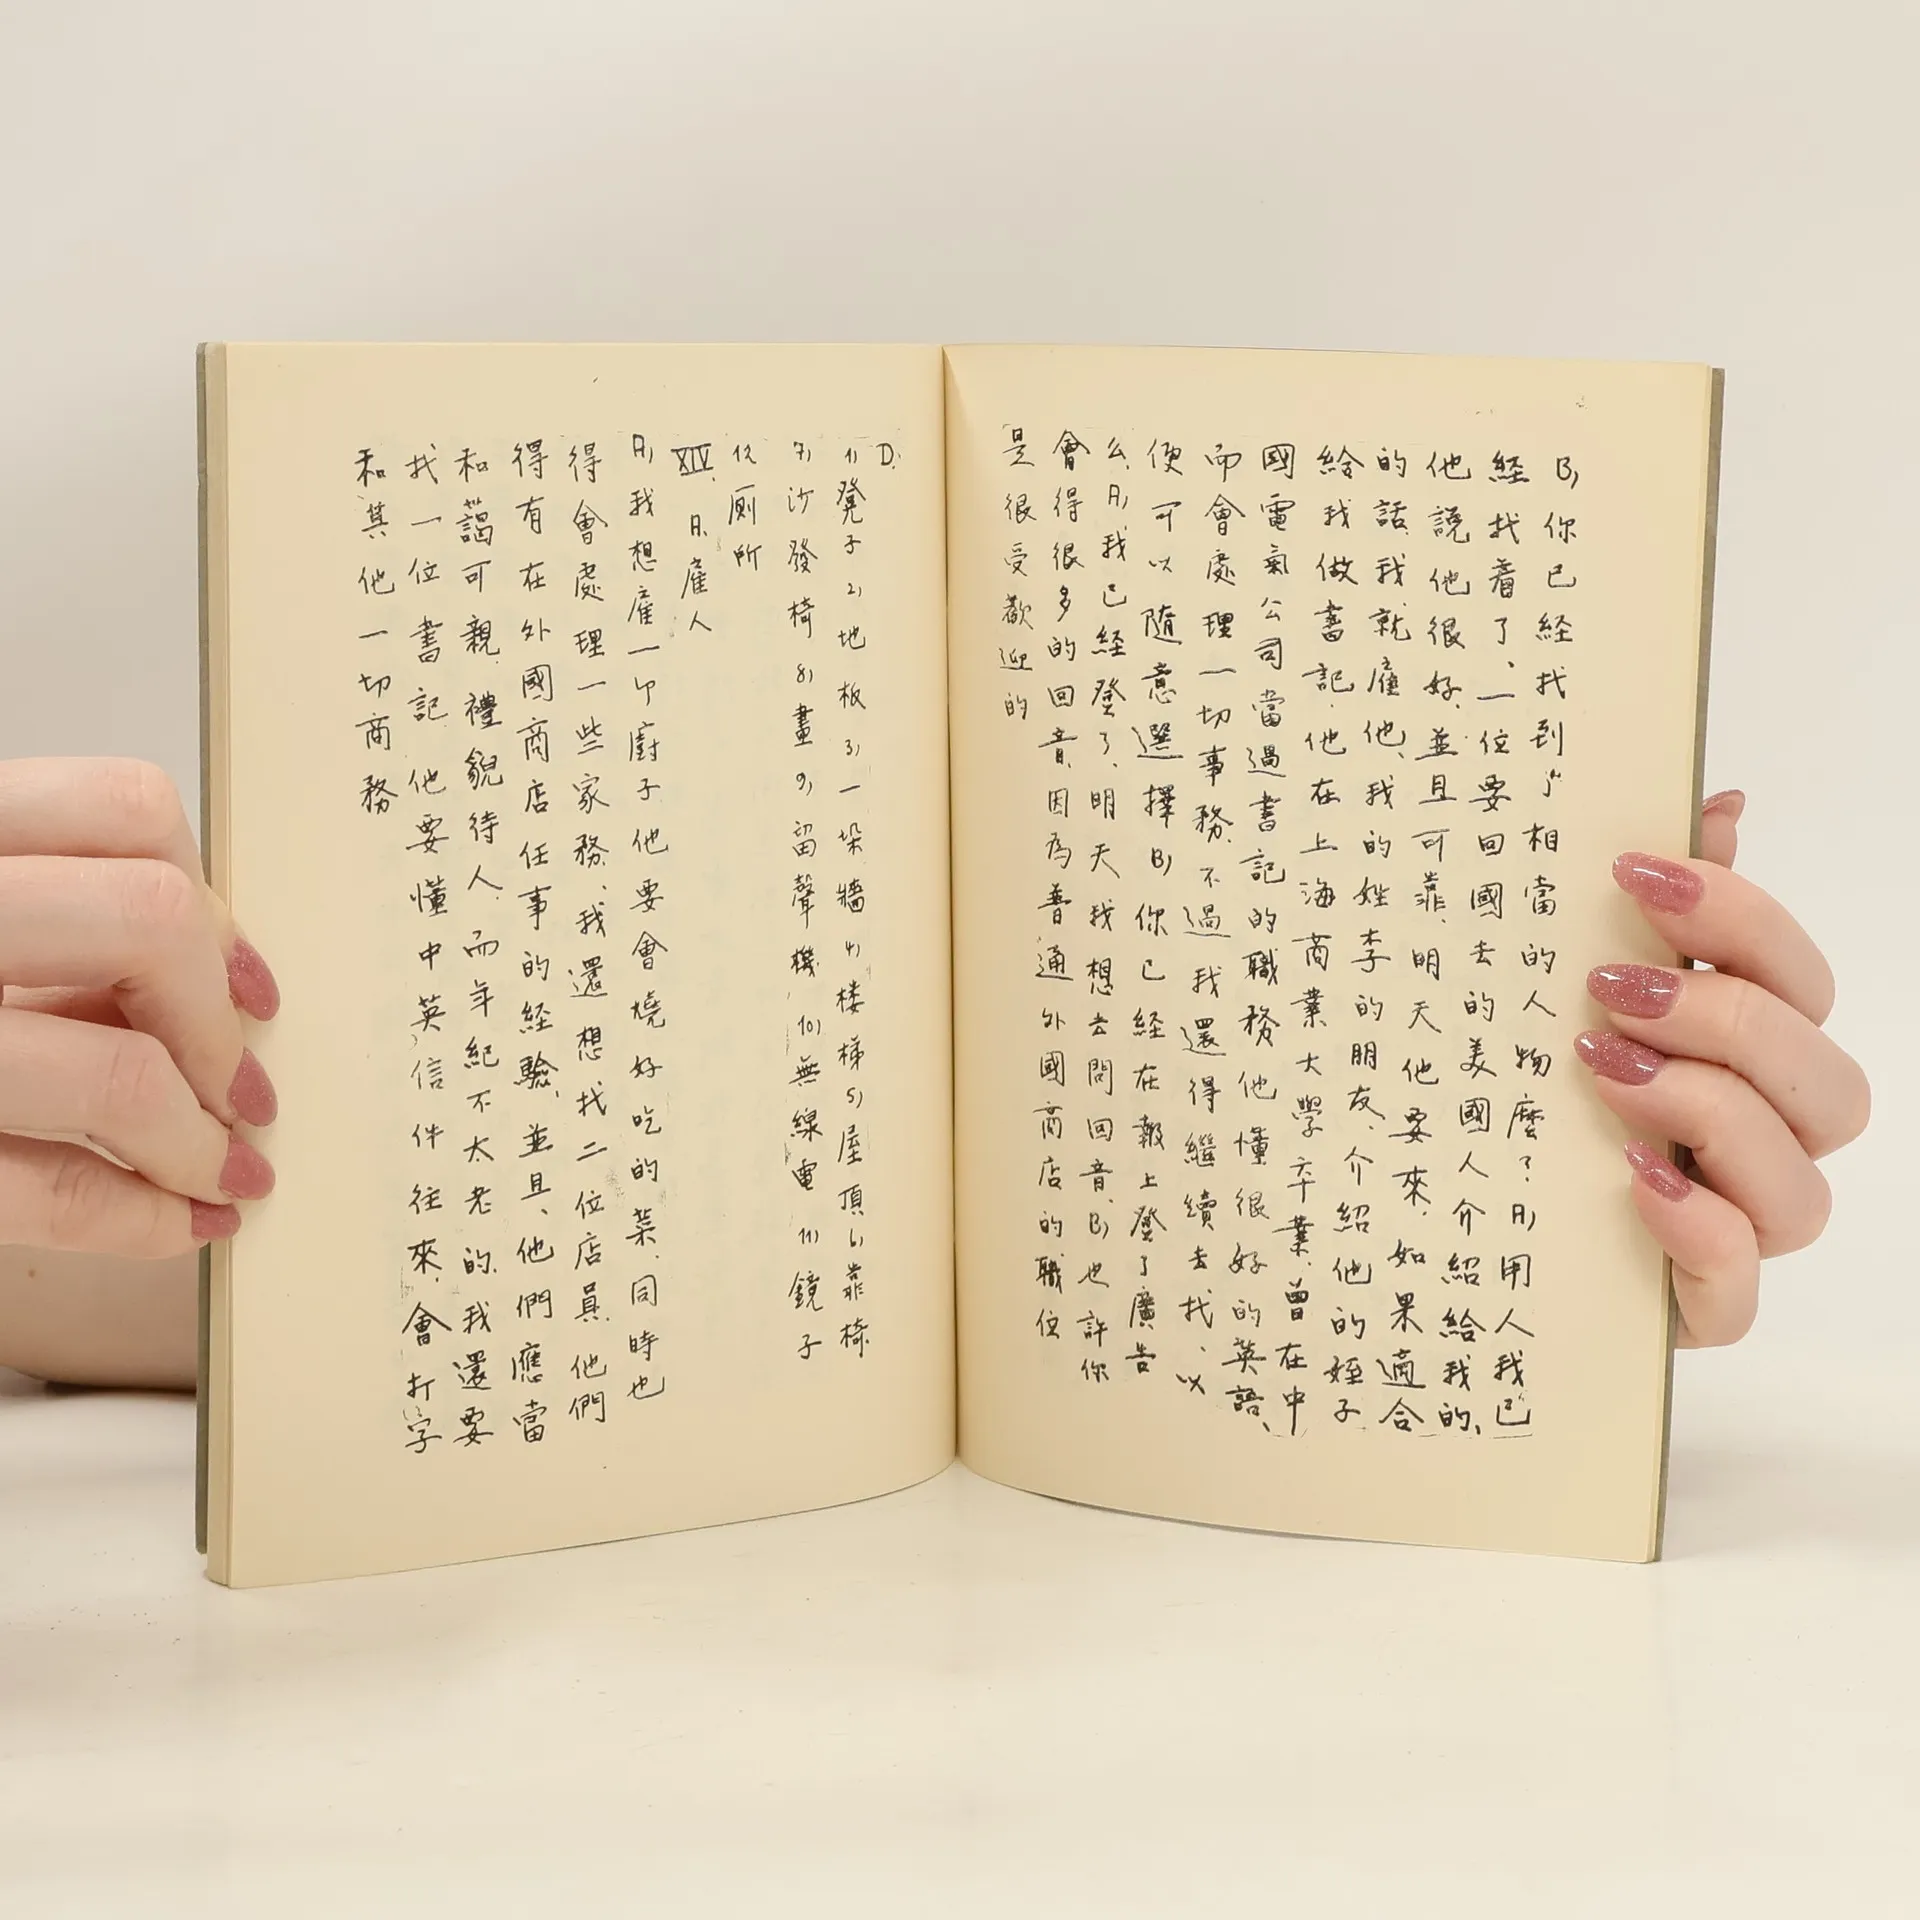 D.
1) 凳子 2) 地板 3) 一垛牆 4) 楼梯 5) 屋頂 6) 靠椅
7) 沙發椅 8) 畫 9) 留聲機 10) 無線電 11) 鏡子
12 厠所
XIV. A. 雇人
A) 我想雇一个廚子他要會燒好吃的菜.同時也
得會處理一些家務、我還想找二位店員.他們
得有在外國商店任事的経驗.並且、他們應當
和藹可親.禮貌待人.而年紀不太老的.我還要
找一位書記.他要懂中英信件往來.會打字
和其他一切商務
B) 你已経找到了相當的人物麼？A) 用人我已
経找着了、一位要回國去的美國人介紹給我的、
他說他很好.並且可靠.明天他要來.如果適合
的話.我就雇他、我的姓李的朋友.介紹他的姪子
給我做書記.他在上海商業大學卒業.曾在中
國電氣公司當過書記的職務他懂很好的英語、
而會處理一切事務.不過我還得繼續去找、以
便可以随意選擇 B) 你已経在報上登了廣告
么. A) 我已経登了.明天我想去問回音. B) 也許你
會得很多的回音.因為普通外國商店的職位
是很受歡迎的